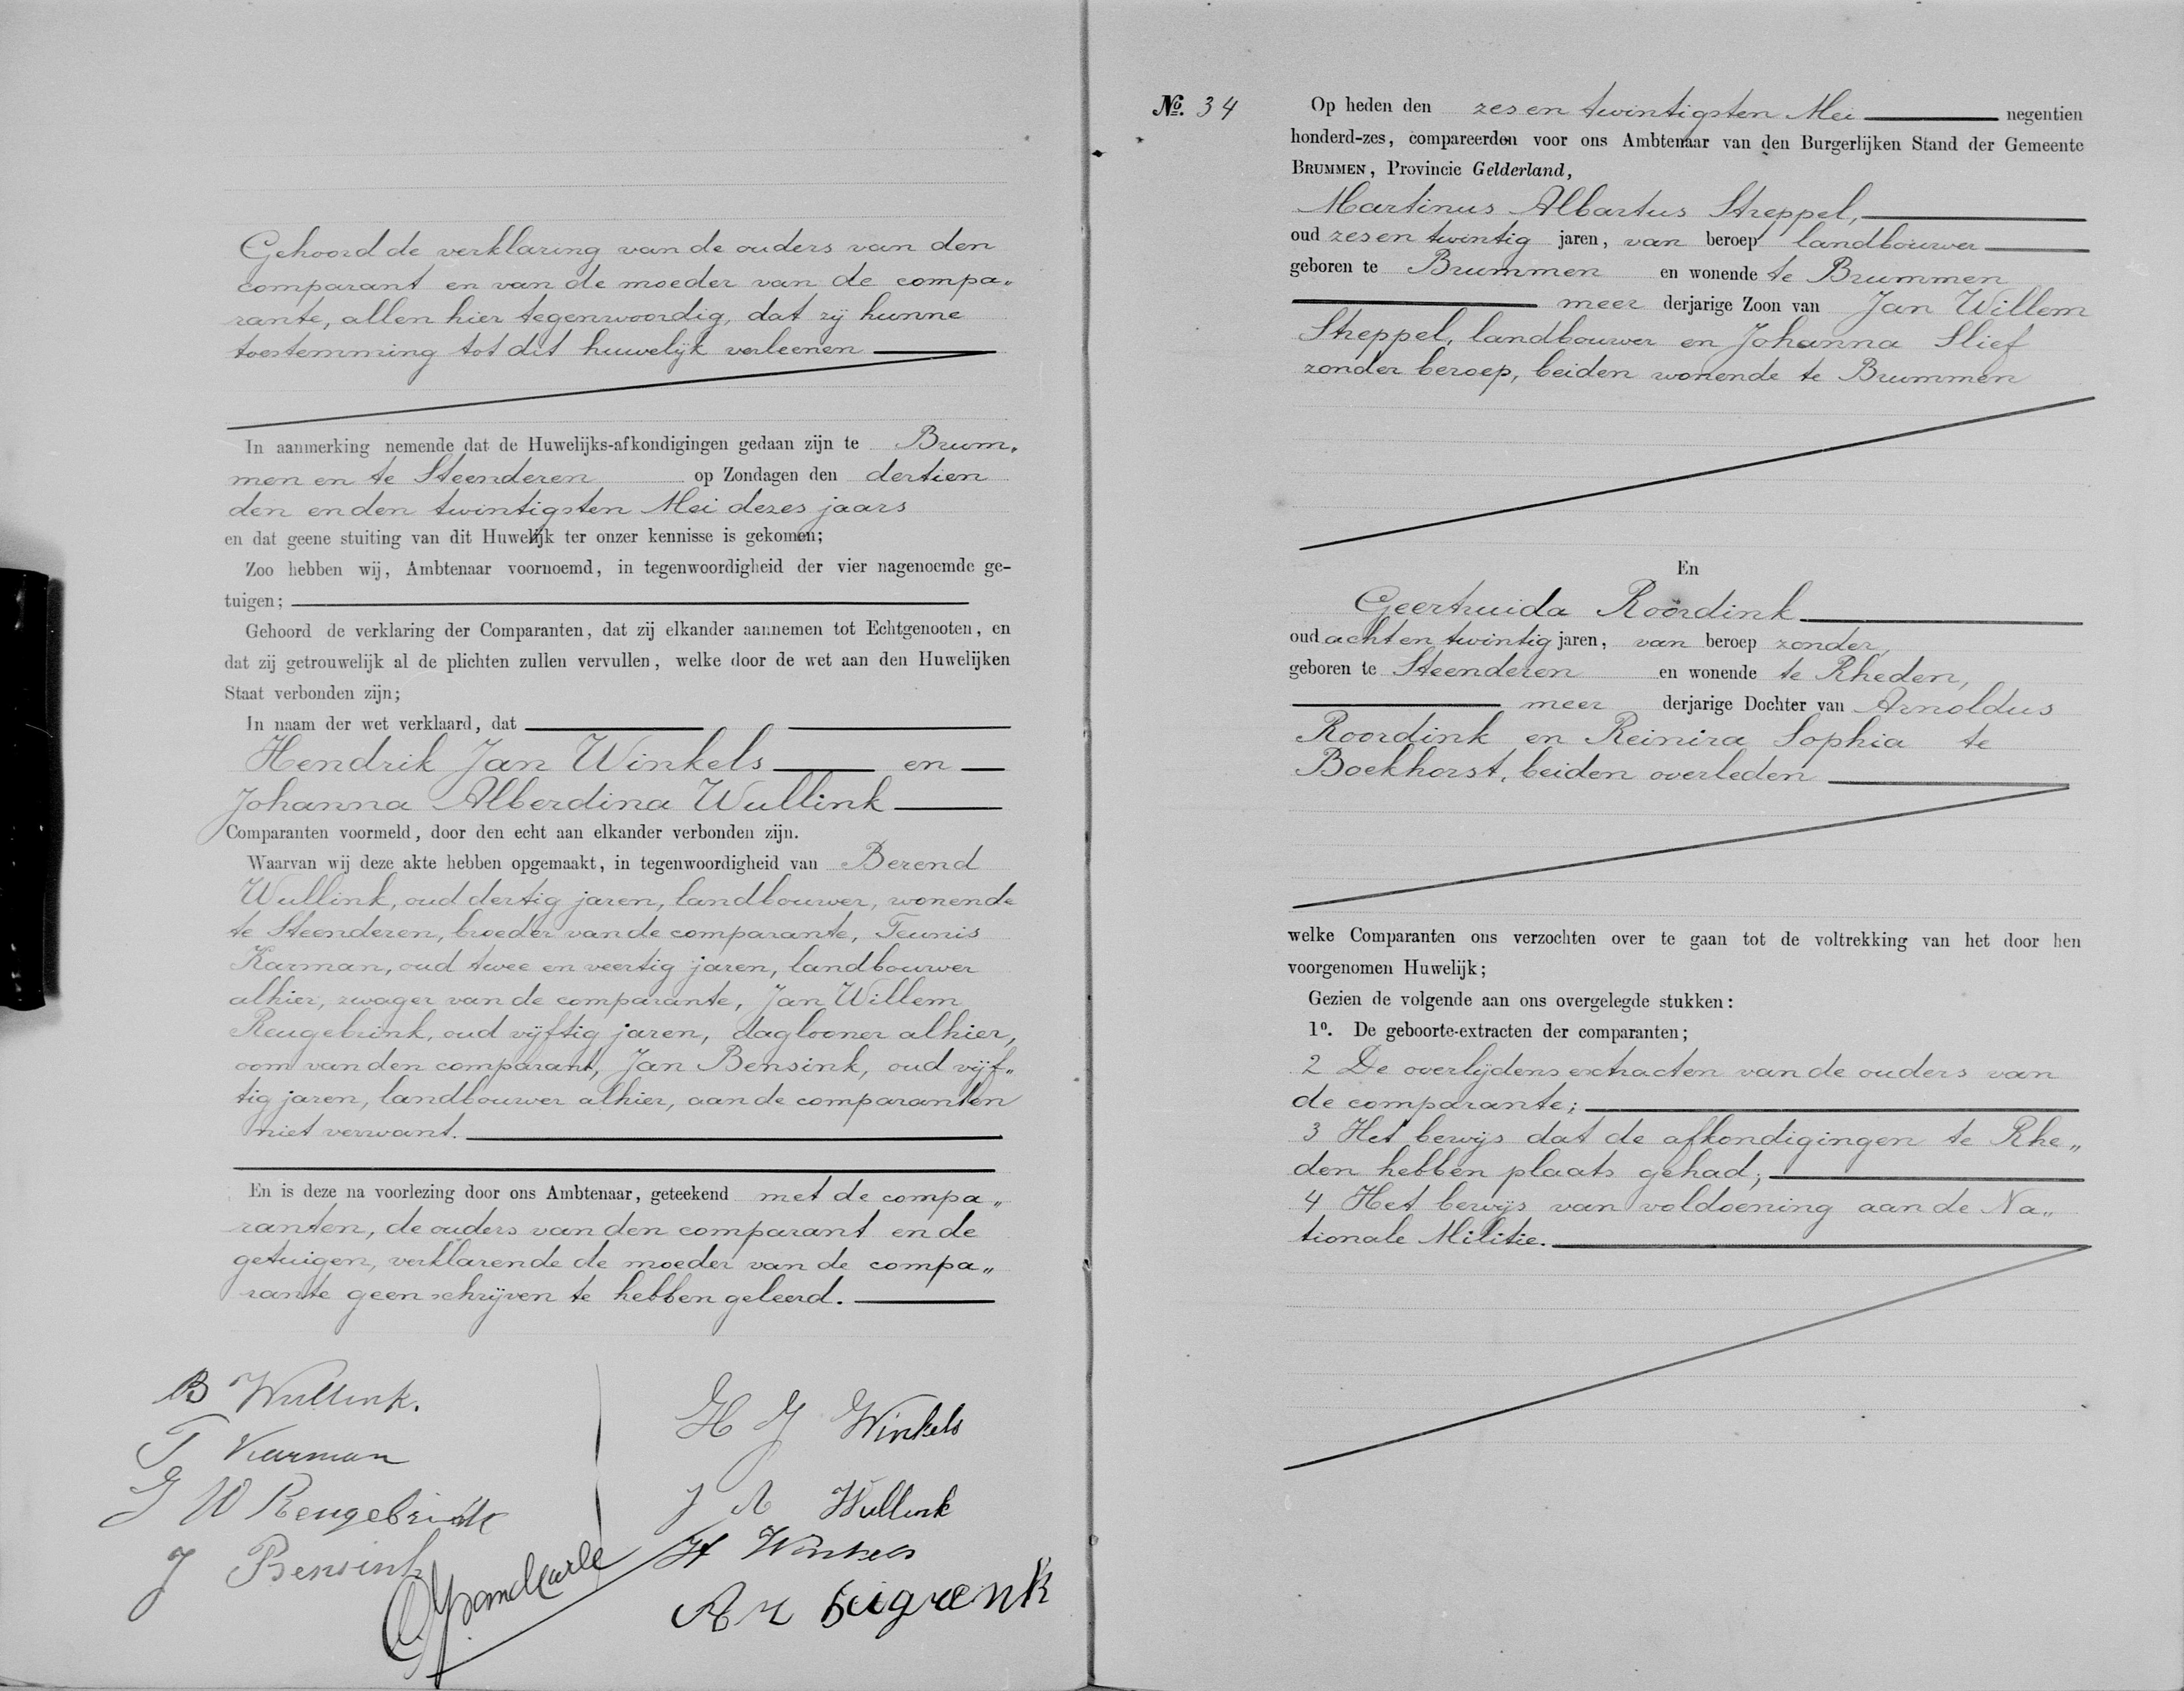 Gehoord de verklaring van de ouders van den
comparant en van de moeder van de compa„
rante, allen hier tegenwoordig, dat zij hunne
toestemming tot dit huwelijk verleenen
In aanmerking nemende dat de Huwelijks-afkondigingen gedaan zijn te Brum„
men en te Steenderen op Zondagen den dertien
den en den twintigsten Mei dezes jaars
en dat geene stuiting van dit Huwelijk ter onzer kennisse is gekomen;
Zoo hebben wij, Ambtenaar voornoemd, in tegenwoordigheid der vier nagenoemde ge-
tuigen;
Gehoord de verklaring der Comparanten, dat zij elkander aannemen tot Echtgenooten, en
dat zij getrouwelijk al de plichten zullen vervullen, welke door de wet aan den Huwelijken
Staat verbonden zijn;
In naam der wet verklaard, dat
Hendrik Jan Winkels en
Johanna Alberdina Wullink
Comparanten voormeld, door den echt aan elkander verbonden zijn.
Waarvan wij deze akte hebben opgemaakt, in tegenwoordigheid van Berend
Wullink, oud dertig jaren, landbouwer, wonende
te Steenderen, broeder van de comparante, Teunis
Karman, oud twee en veertig jaren, landbouwer
alhier, zwager van de comparante, Jan Willem
Reugebrink, oud vijftig jaren, daglooner alhier,
oom van den comparant, Jan Bensink, oud vijf„
tig jaren, landbouwer alhier, aan de comparanten
niet verwant.
En is deze na voorlezing door ons Ambtenaar, geteekend met de compa„
ranten, de ouders van den comparant en de
getuigen, verklarende de moeder van de compa„
rante geen schrijven te hebben geleerd.
B Wullink.
T Karman
J W Reugebrink
J Bensink
H J Winkels
J A Wullink
H Winkels
No. 34
Op heden den zes en twintigsten Mei negentien
honderd-zes, compareerden voor ons Ambtenaar van den Burgerlijken Stand der Gemeente
BRUMMEN, Provincie Gelderland,
Martinus Albartus Streppel,
oud zes en twintig jaren, van beroep landbouwer
geboren te Brummen en wonende te Brummen
meer derjarige Zoon van Jan Willem
Streppel, landbouwer en Johanna Slief
zonder beroep, beiden wonende te Brummen
En
Geertruida Roordink
oud acht en twintig jaren, van beroep zonder,
geboren te Steenderen en wonende te Rheden,
meer derjarige Dochter van Arnoldus
Roordink en Reinira Sophia te
Boekhorst, beiden overleden
welke Comparanten ons verzochten over te gaan tot de voltrekking van het door hen
voorgenomen Huwelijk;
Gezien de volgende aan ons overgelegde stukken:
1o. De geboorte-extracten der comparanten;
2 De overlijdens extracten van de ouders van
de comparante;
3 Het bewijs dat de afkondigingen te Rhe„
den hebben plaats gehad;
4 Het bewijs van voldoening aan de Na„
tionale Militie.